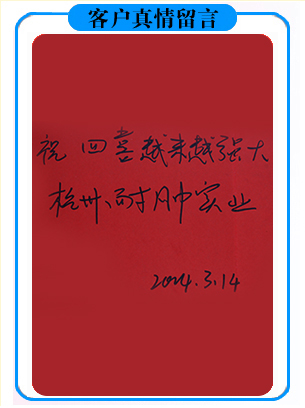 客户真情留言
祝四喜越来越强大
杭州耐帅实业
2024.3.14